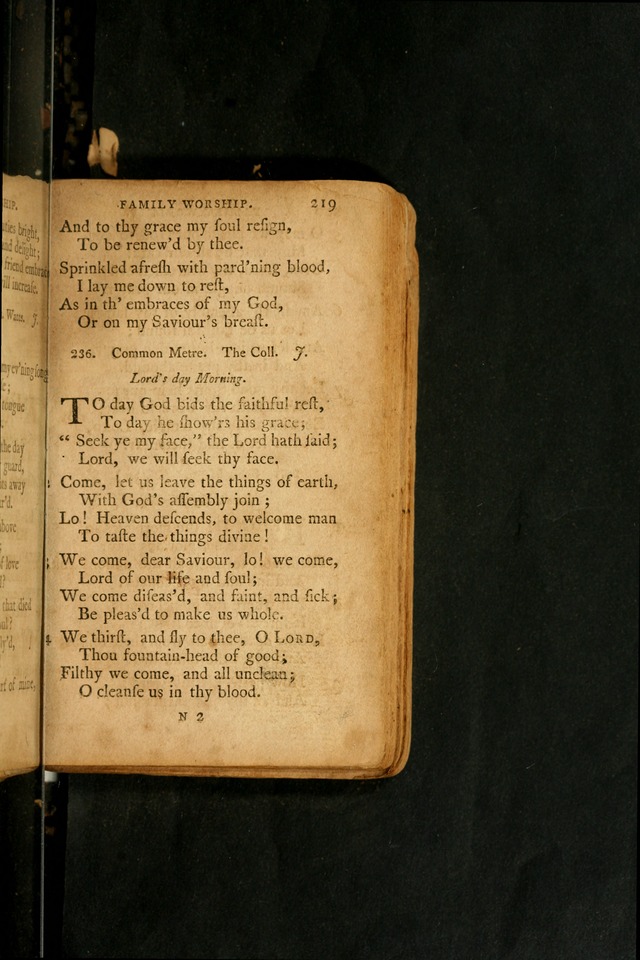 FAMILY WORSHIP. 219
And to thy grace my ſoul reſign,
To be renew'd by thee.
Sprinkled afreſh with pard'ning blood,
I lay me down to reſt,
As in th' embraces of my God,
Or on my Saviour's breaſt.
236. Common Metre. The Coll. J.
Lord's day Morning.
TO day God bids the faithful reſt,
To day he ſhow'rs his grace;
“ Seek ye my face,” the Lord hath ſaid;
Lord, we will ſeek thy face.
Come, let us leave the things of earth,
With God's aſſembly join ;
Lo! Heaven deſcends, to welcome man
To taſte the things divine !
We come, dear Saviour, lo! we come,
Lord of our life and ſoul;
We come diſeas'd, and faint, and ſick;
Be pleas'd to make us whole.
4 We thirſt, and fly to thee, O LORD,
Thou fountain-head of good;
Filthy we come, and all unclean;
O cleanſe us in thy blood.
N 2
bright,
and delight;
friend embrac
ill increaſe.
Watts. J.
my ev'ning ſong
tongue
the day
guard,
away
above
of love
that died
of mine,